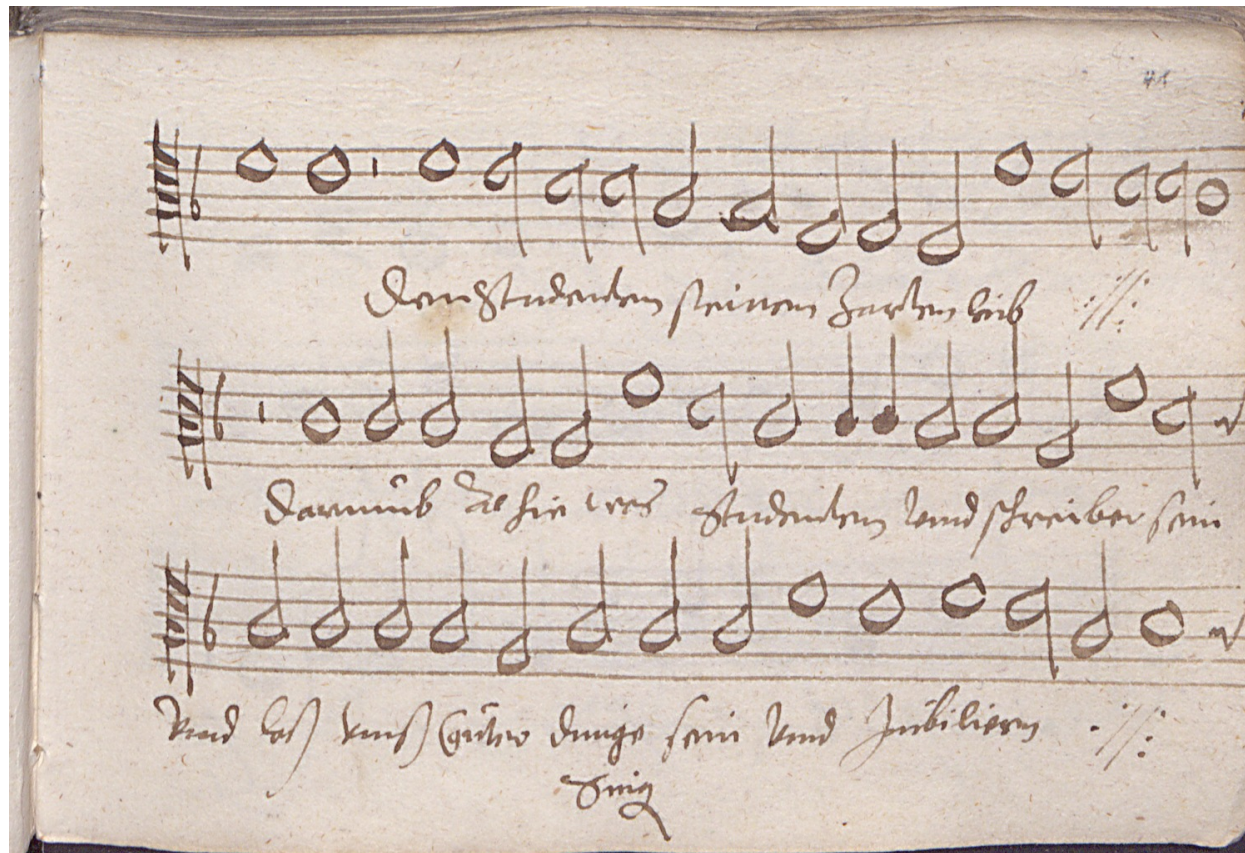 Den Studenten seinem Zarten leib ://:
Darumb all hie Studenten vnd schreiber sein
vnd laß vnß guter dinge sein vnd Jubiliern ://: